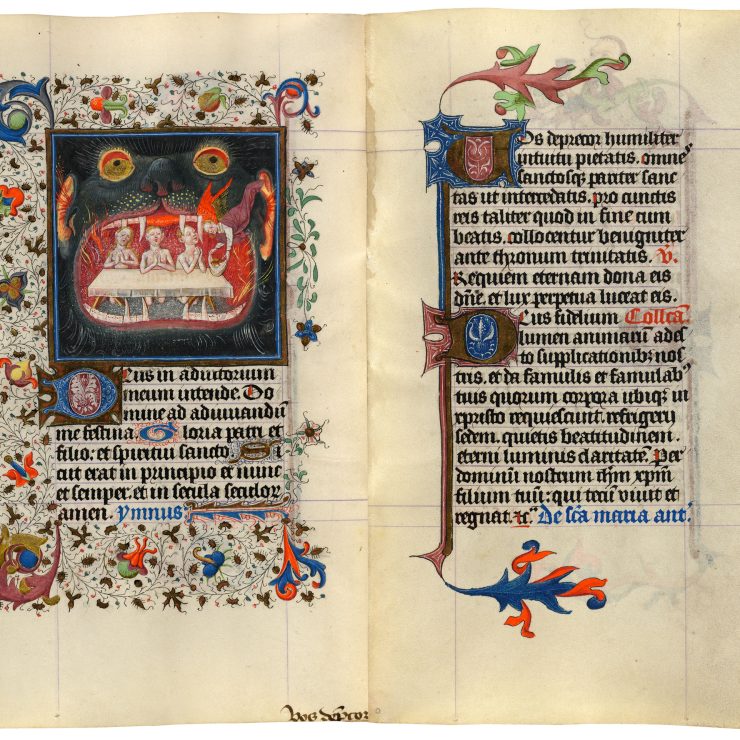 Deus in adiutorium
meum intende. Do
mine ad adiuuandū
me festina. Gloria patri et
filio: et spiritui sancto. Si
cut erat in principio et nunc
et semper: et in secula seculor
amen. ymnus.
vos dep̄cor
Vos deprecor humiliter
intuitu pietatis. omnes
sanctosqꝫ pariter sanc
tas ut intercedatis. pro cunctis
reis taliter quod in fine cum
beatis. collocentur benigniter
ante thronum trinitatis. V.
Requiem eternam dona eis
dn̄e. et lux perpetua luceat eis.
Deus fidelium Collcā.
lumen animarū ades
to supplicationibꝫ nos
tris. et da famulis et famulabꝫ
tuis quorum corpora ubiqꝫ in
xpristo requiescunt. refrigerij
sedem. quietis beatitudinem.
eterni luminis claritatē. Per
dominū nostrum ih̄m xp̄m
filium tuū: qui tecū viuit et
regnat. ⁊c̄. De scā maria ant.